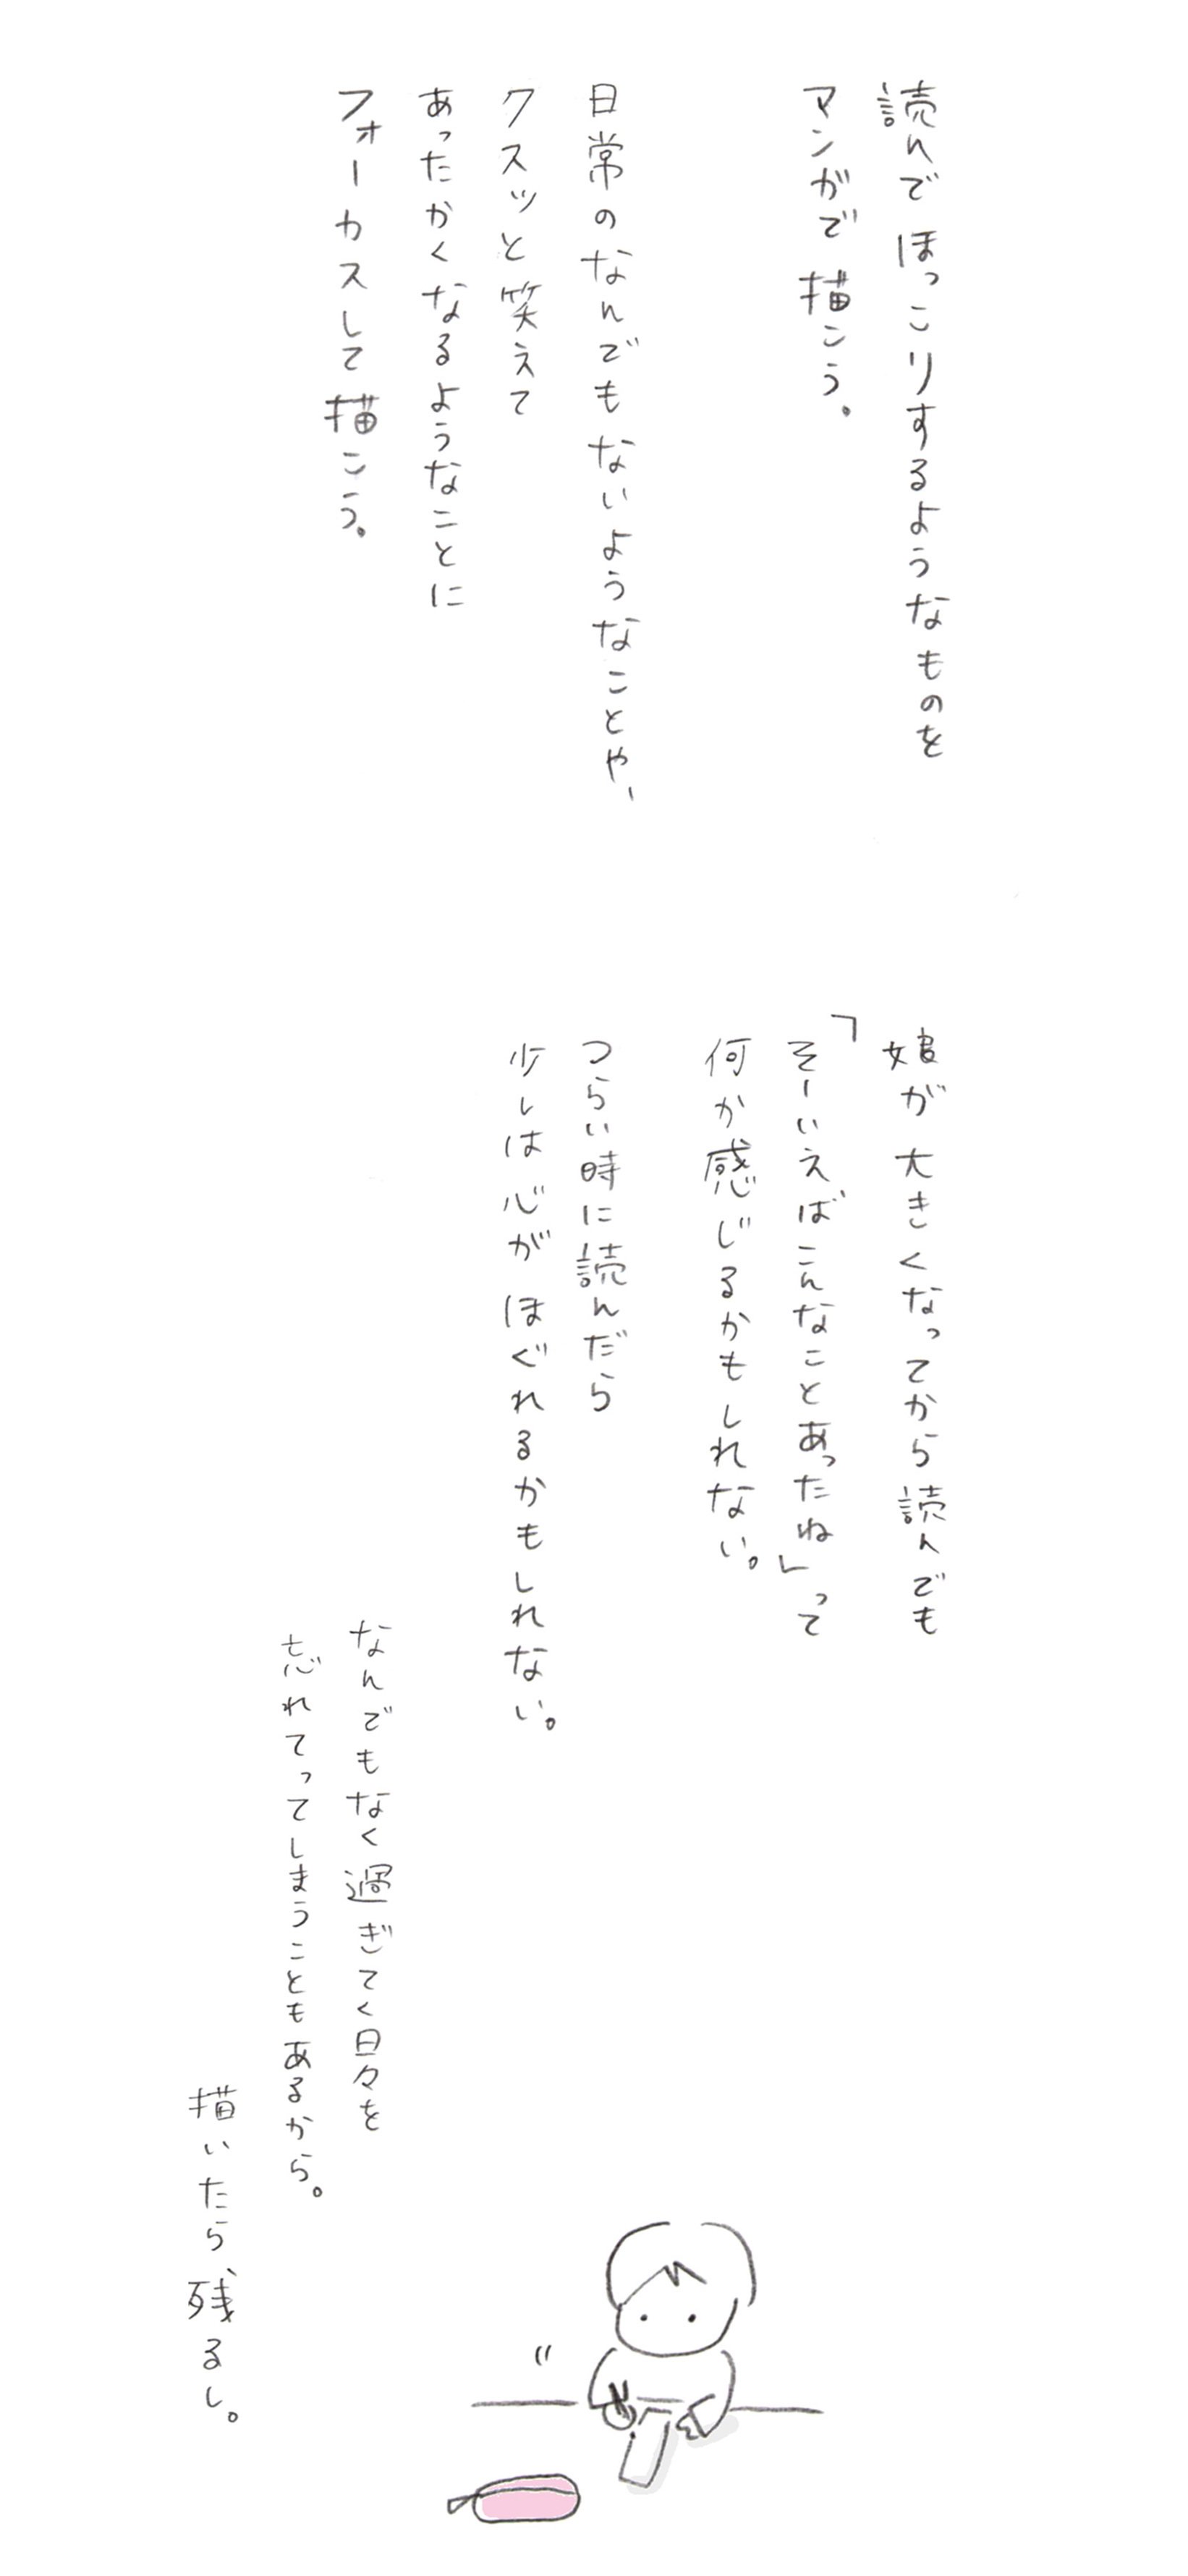 読んでほっこりするようなものを
マンガで描こう。
日常のなんでもないようなことや、
クスッと笑えて
あったかくなるようなことに
フォーカスして描こう。
娘が大きくなってから読んでも
「そーいえばこんなことあったね」って
何か感じるかもしれない。
つらい時に読んだら
少しは心がほぐれるかもしれない。
なんでもなく過ぎてく日々を
忘れてってしまうこともあるから。
描いたら残るし。